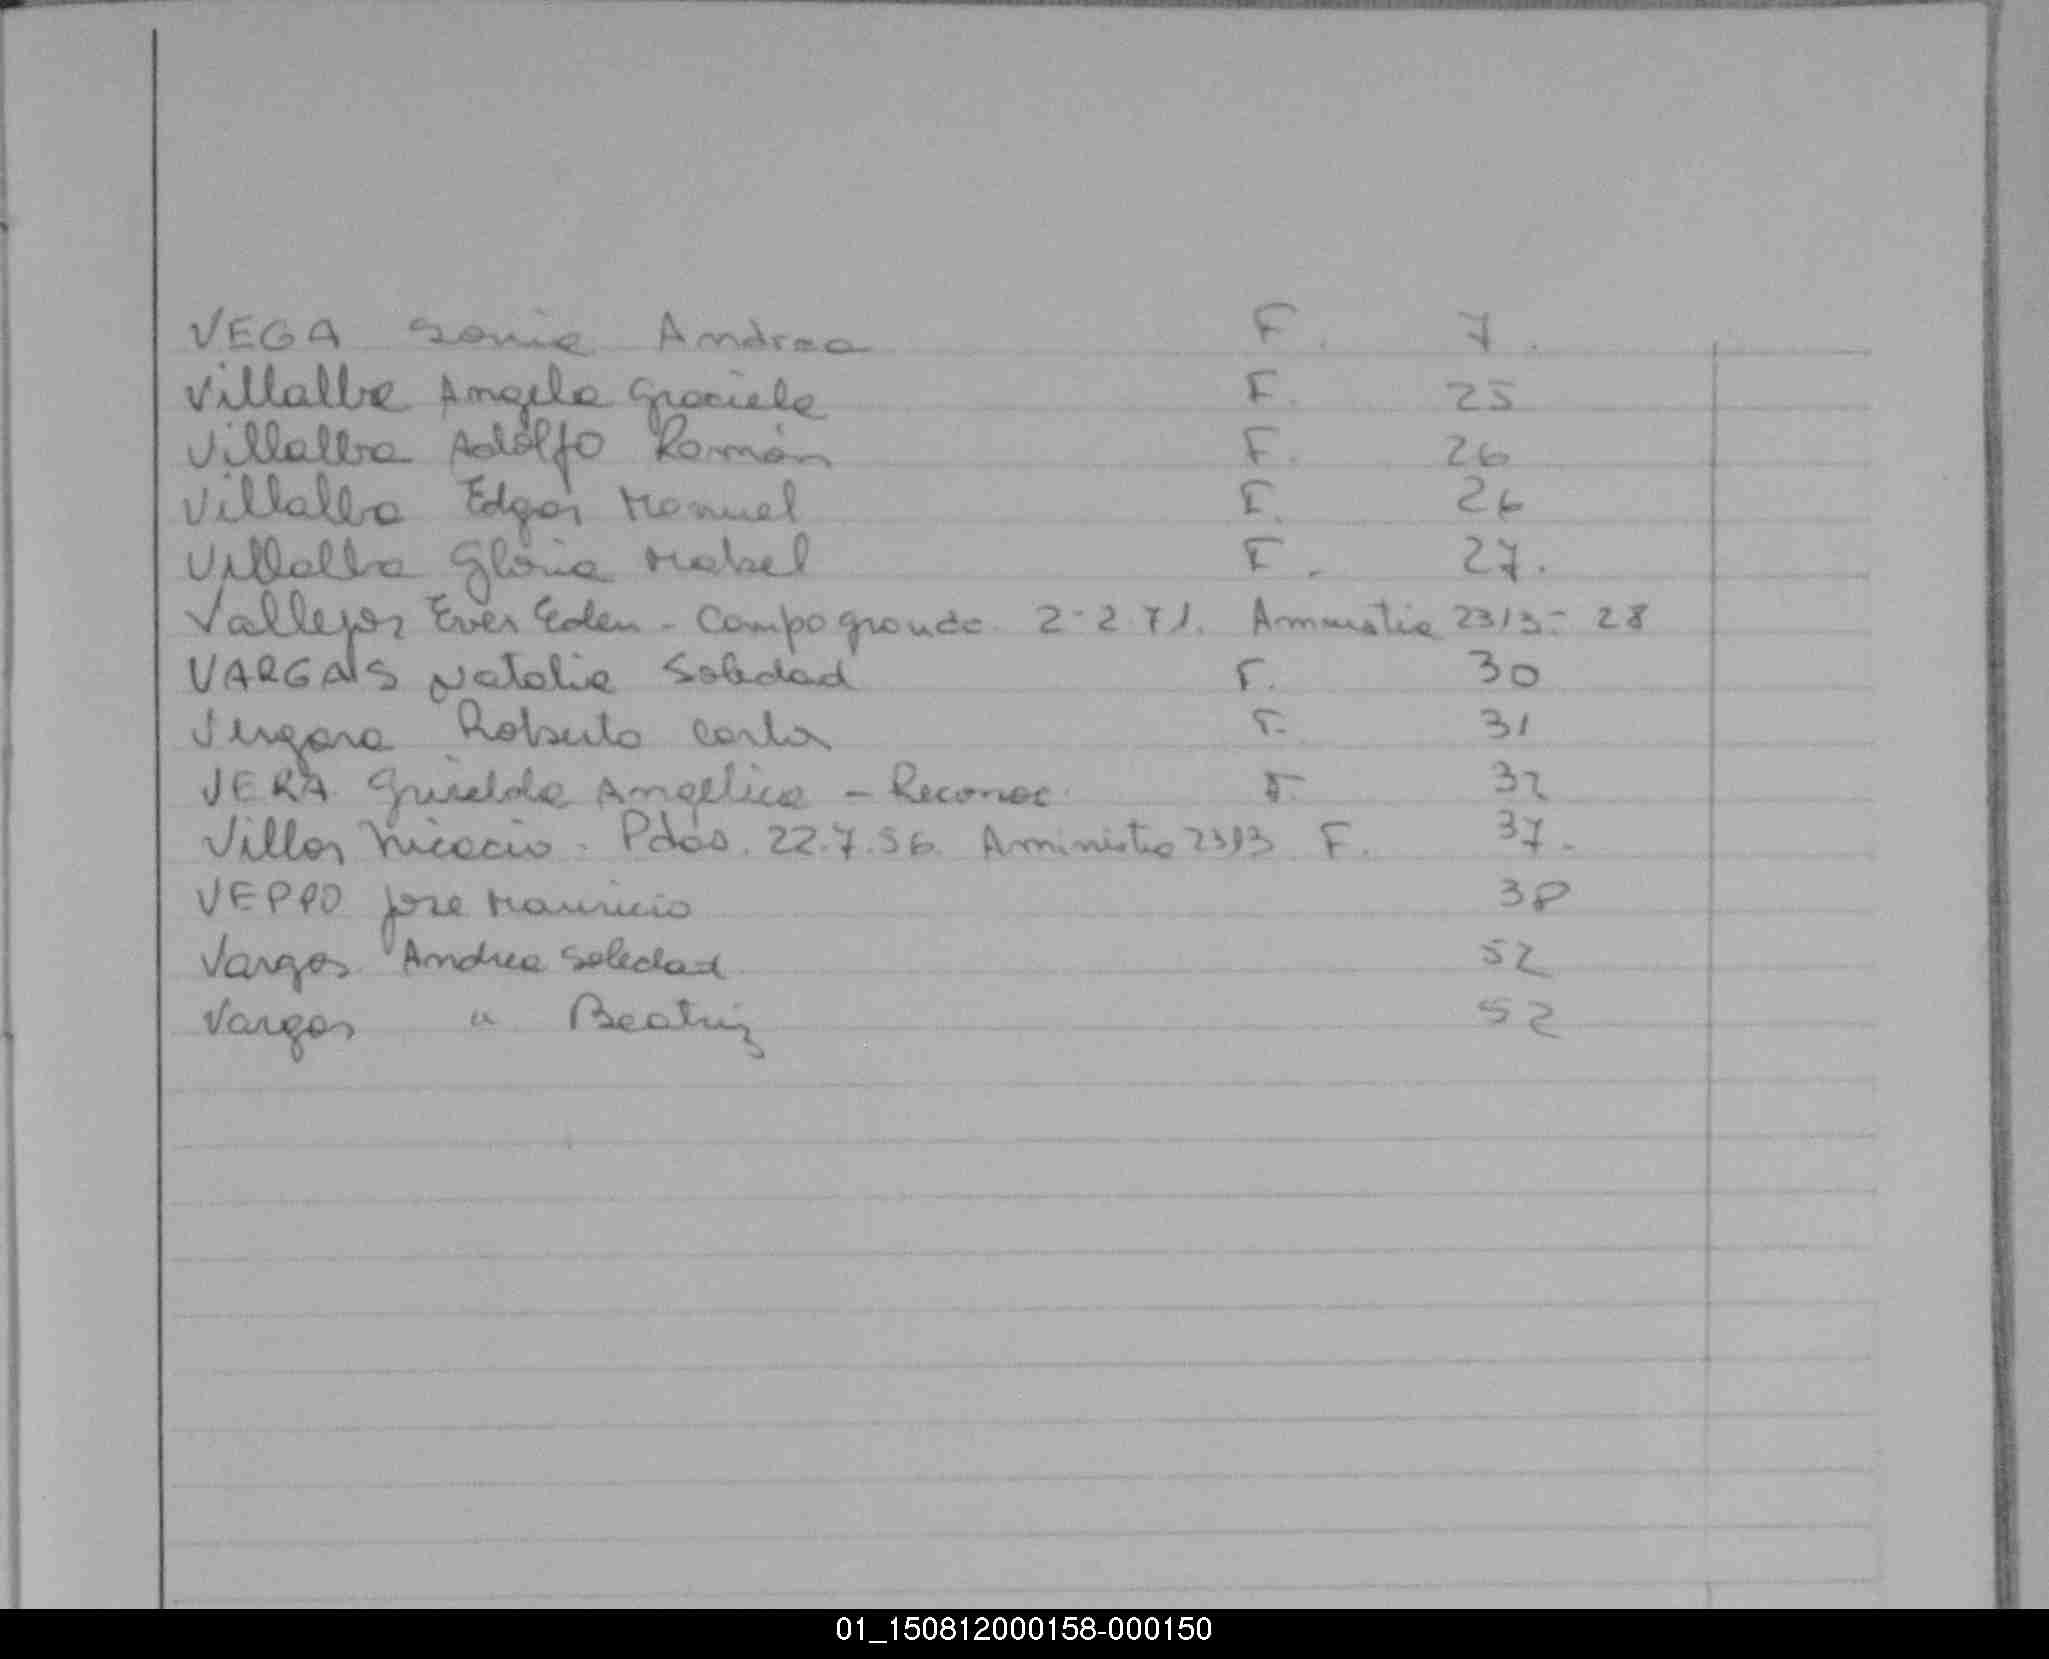 VEGA Sonia Andrea F. 7.
Villalba Angela Graciela F. 25
Villalba Adolfo Román F. 26
Villalba Edgar Manuel F. 26
Villalba Gloria Mabel F. 27.
Vallejos Ever Eden - Campo grande. 2-2-71. Amnistia 2313 - 28
VARGAS Natalia Soledad F. 30
Vergara Roberto Carlos F. 31
VERA Griselda Angelica - Reconoc. F. 32
Villar Nicacio. Pdas. 22.7.56. Aministia 2313 F. 37.
VEPPO Jose Mauricio 38
Vargas Andrea Soledad 52
Vargas " Beatriz 52
01_150812000158-000150